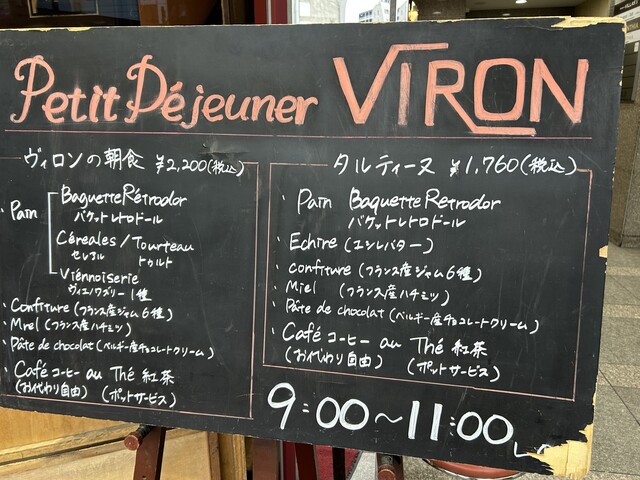 Petit Déjeuner VIRON
ヴィロンの朝食 ¥2,200(税込)
・Pain
Baguette Rétrodor
バゲットレトロドール
Céreales / Tourteau
セレアル トゥルト
Viénnoiserie
ヴィエノワズリー1種
・Confiture (フランス産ジャム6種)
・Miel (フランス産ハチミツ)
・Pâte de chocolat (ベルギー産チョコレートクリーム)
・Café コーヒー au Thé 紅茶
(おかわり自由) (ポットサービス)
タルティーヌ ¥1,760(税込)
・Pain Baguette Retrodor
バゲットレトロドール
・Echire (エシレバター)
・confiture (フランス産ジャム6種)
・Miel (フランス産ハチミツ)
・Pâte de chocolat (ベルギー産チョコレートクリーム)
・Café コーヒー au Thé 紅茶
(おかわり自由) (ポットサービス)
9:00〜11:00